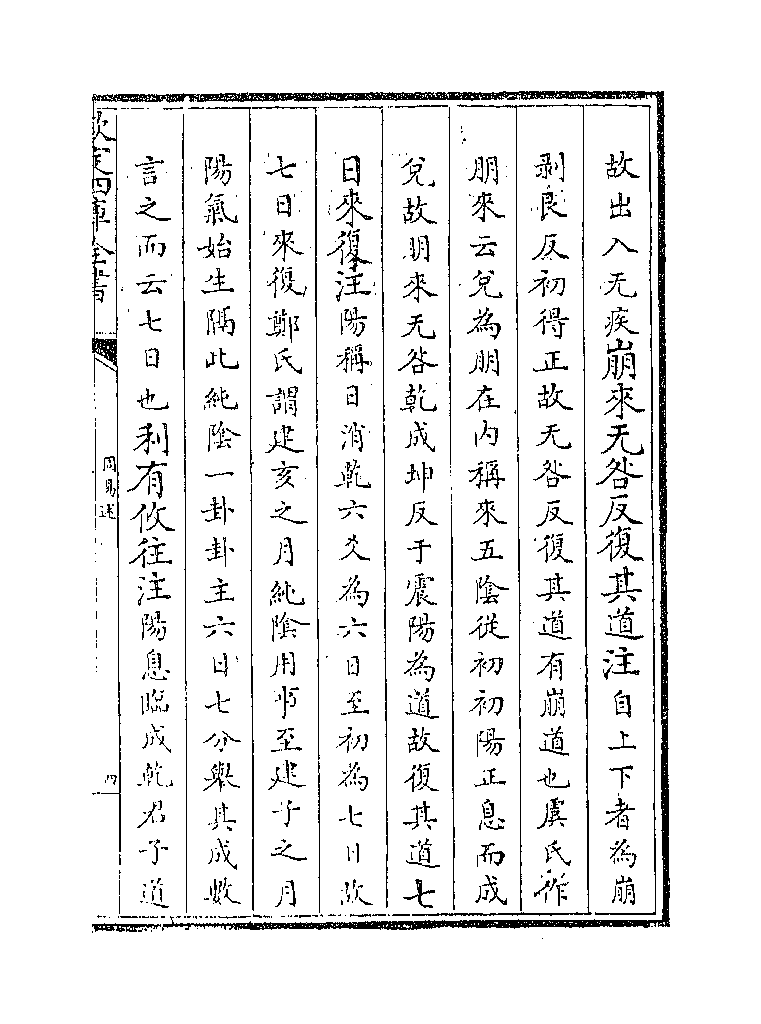 故出入无疾崩來无咎反復其道注自上下者為崩
剥艮反初得正故无咎反復其道有崩道也虞氏作
朋來云兌為朋在内稱來五陰從初初陽正息而成
兌故朋來无咎乾成坤反于震陽為道故復其道七
日來復注陽稱日消乾六爻為六日至初為七日故
七日來復鄭氏謂建亥之月純陰用事至建子之月
陽氣始生隔此純陰一卦卦主六日七分舉其成數
言之而云七日也利有攸往注陽息臨成乾君子道
欽定四庫全書
周易述
四